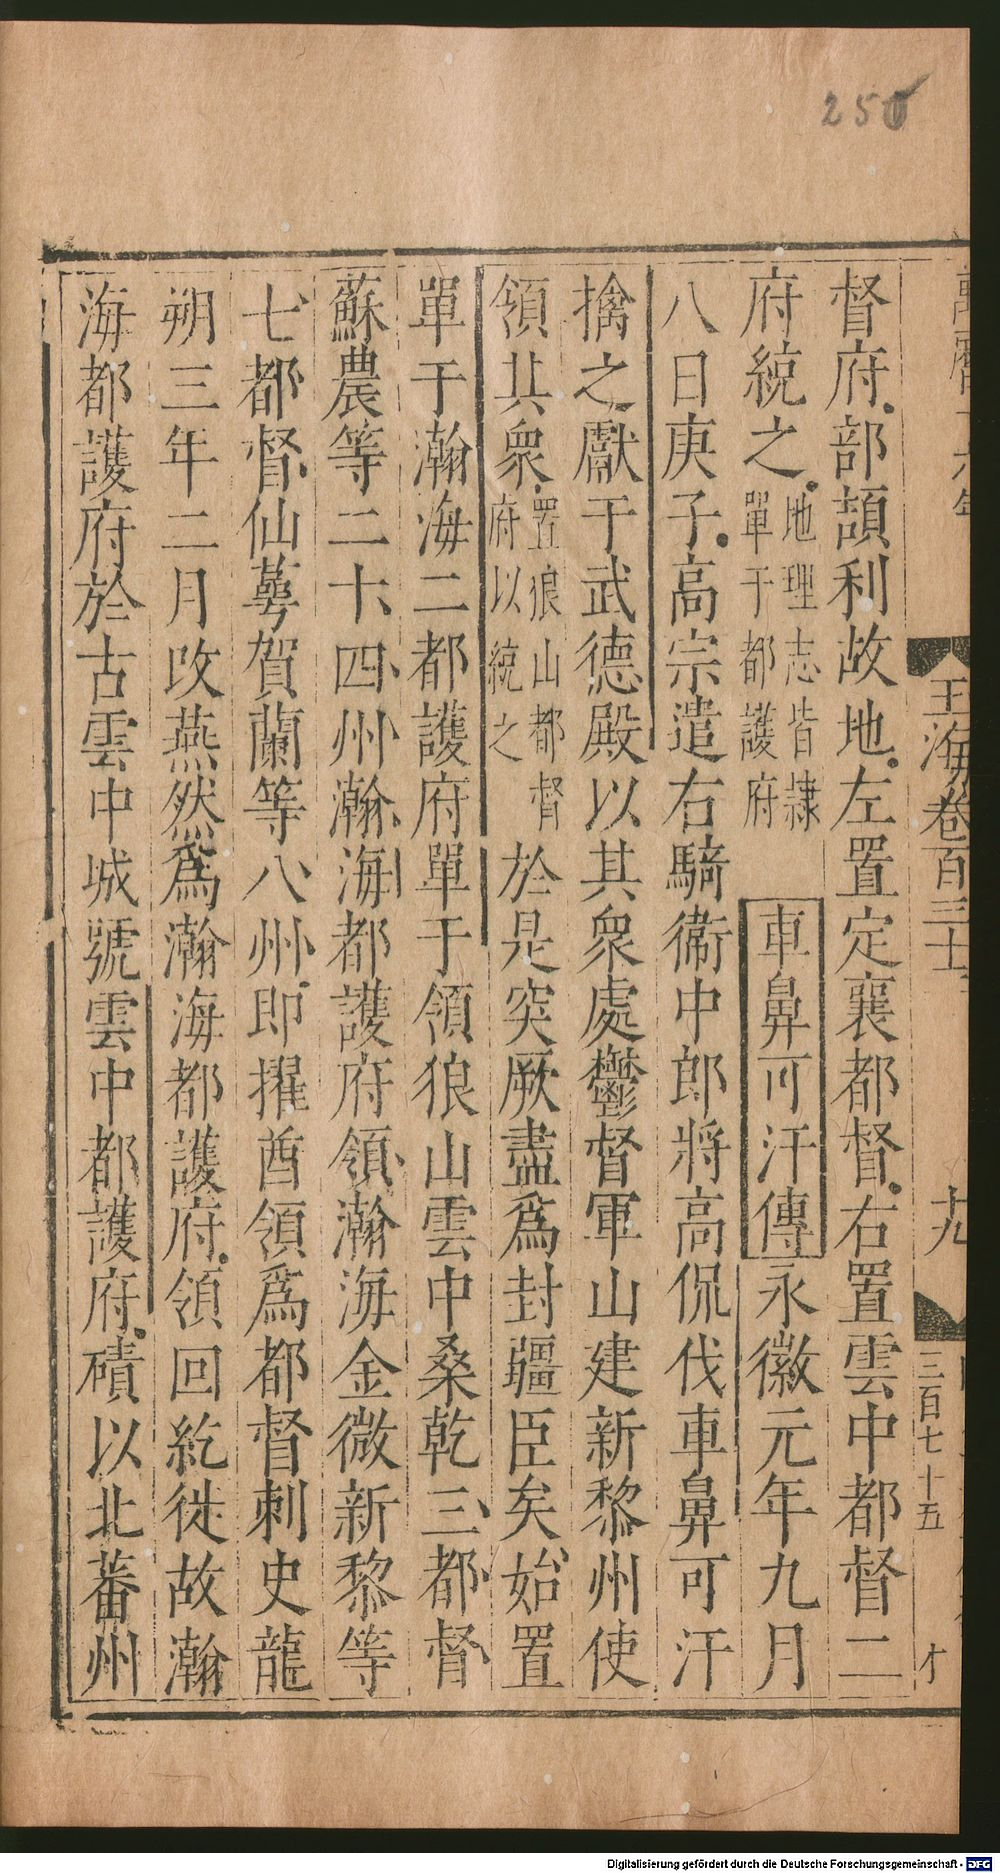 250
玉海卷百三十
十九
三百七十五
督府部頡利故地左置定襄都督右置雲中都督二
府統之地理志皆隸單于都護府車鼻可汗傳永徽元年九月
八日庚子高宗遣右驍衛中郎將高侃伐車鼻可汗
擒之獻于武德殿以其衆處鬱督軍山建新黎州使
領其衆置狼山都督府以統之於是突厥盡為封疆臣矣始置
單于瀚海二都護府單于領狼山雲中桑乾三都督
蘇農等二十四州瀚海都護府領瀚海金微新黎等
七都督仙萼賀蘭等八州即擢酋領為都督刺史龍
朔三年二月改燕然為瀚海都護府領回紇徙故瀚
海都護府於古雲中城號雲中都護府磧以北蕃州
Digitalisierung gefördert durch die Deutsche Forschungsgemeinschaft - DFG